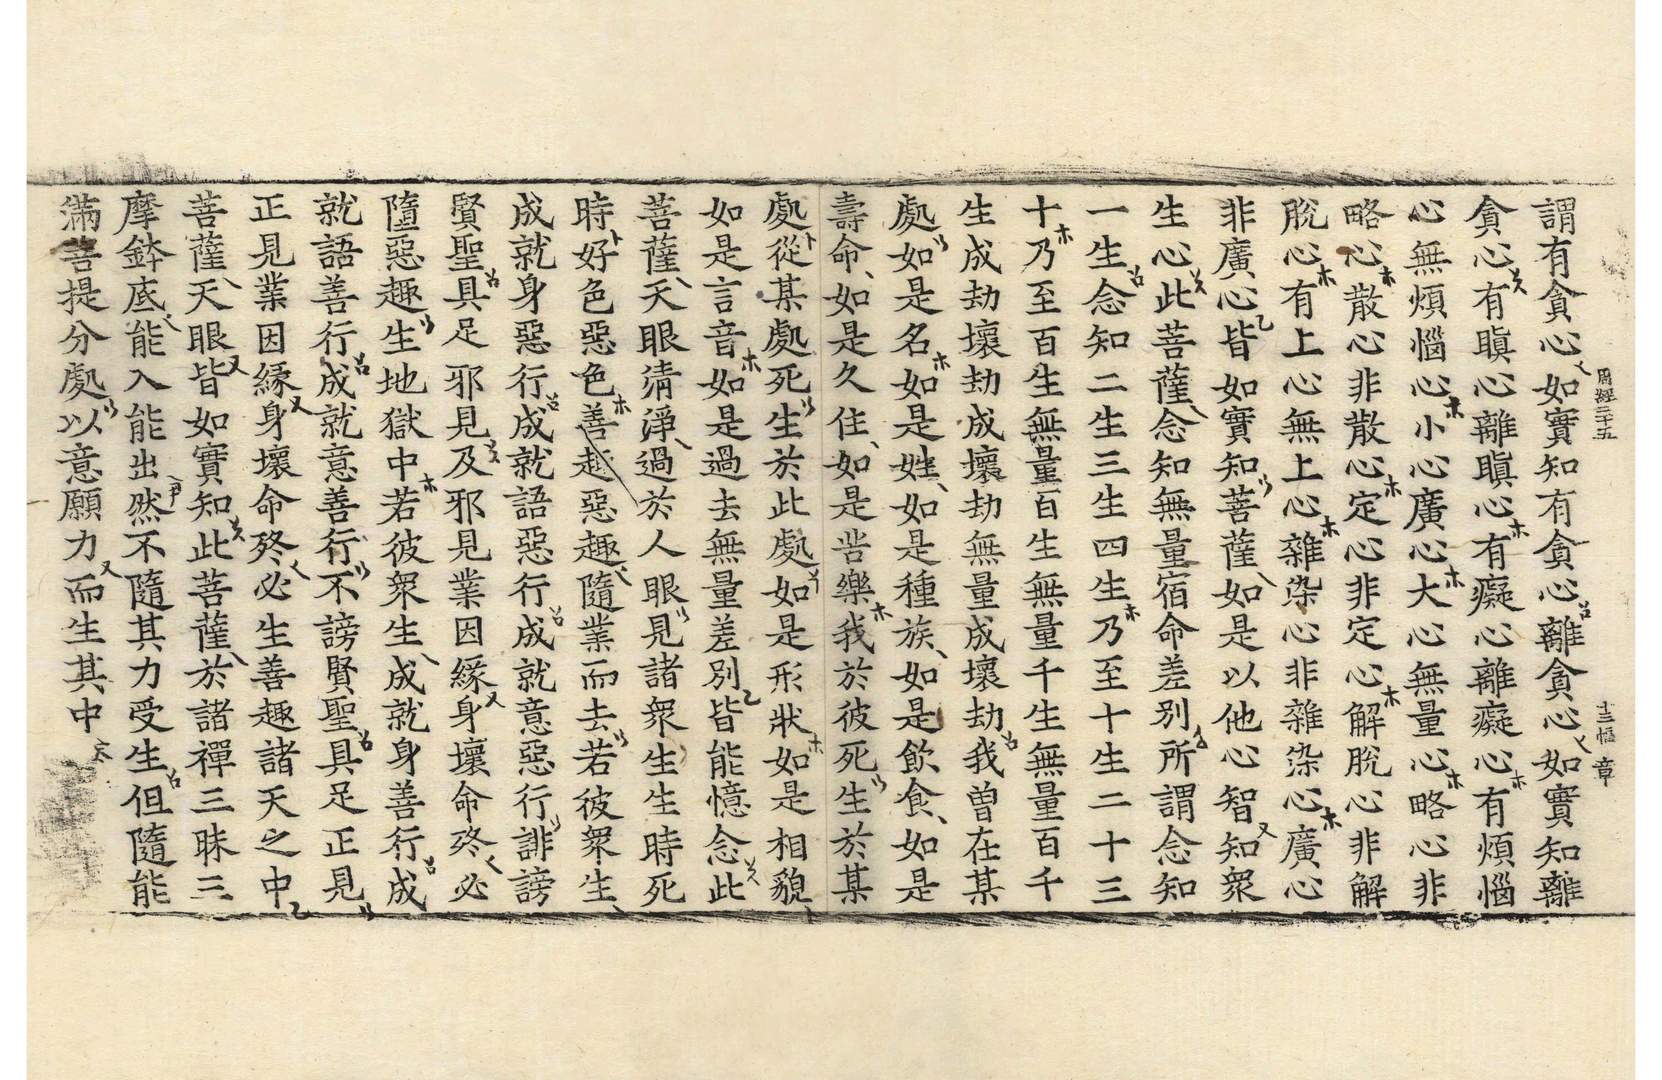 周經三十五
十三幅 章
謂有貪心如實知有貪心離貪心如實知離
貪心有瞋心離瞋心有癡心離癡心有煩惱
心無煩惱心小心廣心大心無量心略心非
略心散心非散心定心非定心解脫心非解
脫心有上心無上心雜染心非雜染心廣心
非廣心皆如實知菩薩如是以他心智知衆
生心此菩薩念知無量宿命差別所謂念知
一生念知二生三生四生乃至十生二十三
十乃至百生無量百生無量千生無量百千
生成劫壞劫成壞劫無量成壞劫我曾在某
處如是名如是姓如是種族如是飲食如是
壽命如是久住如是苦樂我於彼死生於某
處從某處死生於此處如是形狀如是相貌
如是言音如是過去無量差別皆能憶念此
菩薩天眼清淨過於人眼見諸衆生生時死
時好色惡色善趣惡趣隨業而去若彼衆生
成就身惡行成就語惡行成就意惡行誹謗
賢聖具足邪見及邪見業因緣身壞命終必
墮惡趣生地獄中若彼衆生成就身善行成
就語善行成就意善行不謗賢聖具足正見
正見業因緣身壞命終必生善趣諸天之中
菩薩天眼皆如實知此菩薩於諸禪三昧三
摩鉢底能入能出然不隨其力受生但隨能
滿菩提分處以意願力而生其中